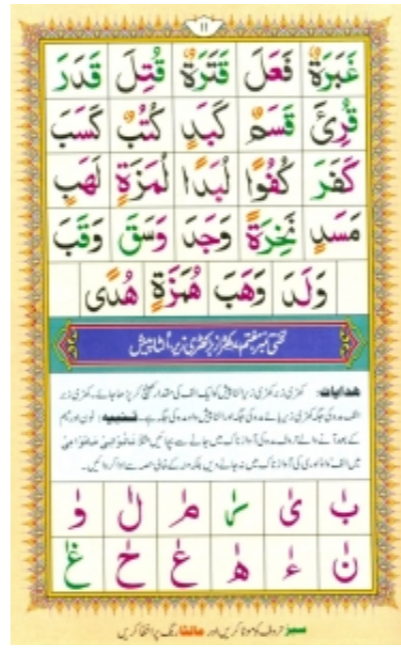 ۱۱
غَبَرَةٌ فَعَلَ قَتَرَةٌ قُتِلَ قَدَرَ
قُرِئَ قَسَمٌ كَبَدٍ كُتُبٌ كَسَبَ
كَفَرَ كُفُوًا لُبَدًا لُمَزَةٍ لَهَبٍ
مَسَدٍ نَخِرَةً وَجَدَ وَسَقَ وَقَبَ
وَلَدَ وَهَبَ هُمَزَةٍ هُدًى
تختی نمبر ہفتم، کھڑا زبر کھڑی زیر، اُلٹا پیش
هدایات: کھڑی زبر کھڑی زیر الٹا پیش کو ایک الف کی مقدار کھینچ کر پڑھا جائے۔ کھڑی زبر
الف مدہ کی جگہ کھڑی زیر یائے مدہ کی جگہ اور الٹا پیش واؤ مدہ کی جگہ ہے۔ تنبیہ: نون اور میم
کے بعد آنے والے حروف مدہ کی آواز ناک میں جانے سے بچائیں مثلاً
میں الف واؤ اور ی کی آواز ناک میں نہ جانے دیں بلکہ منہ کے خالی حصہ سے ادا کروائیں۔
بٰ یٰ رٰ مٰ لٰ وٰ
نٰ ءٰ هٰ عٰ حٰ غٰ
سبز حروف کو موٹا کریں اور مالٹا رنگ پر اخفا کریں